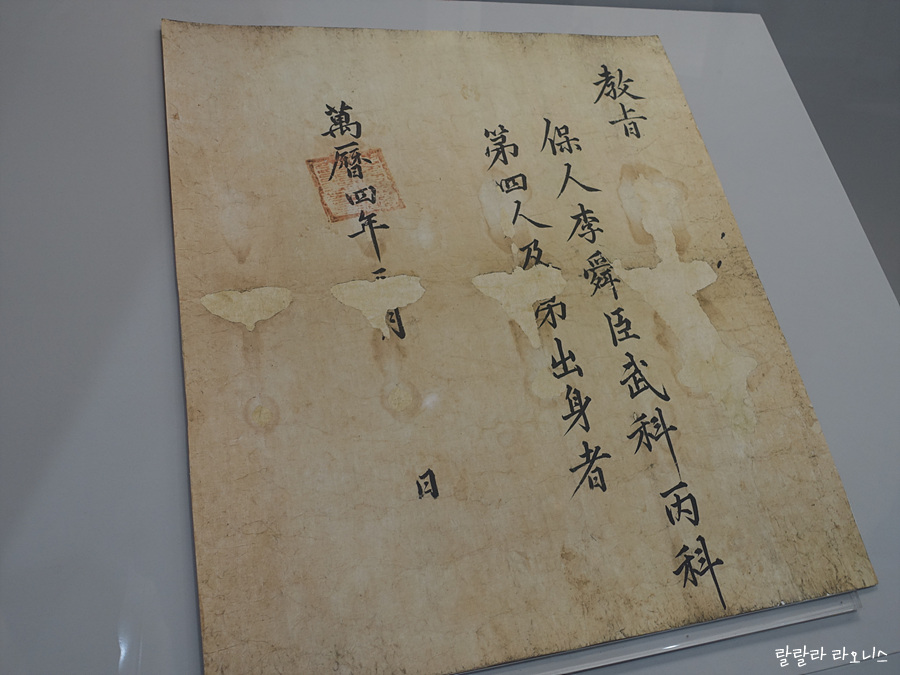 教旨
保人李舜臣武科丙科
第四人及第出身者
萬曆四年三月 日
랄랄라 라오니스